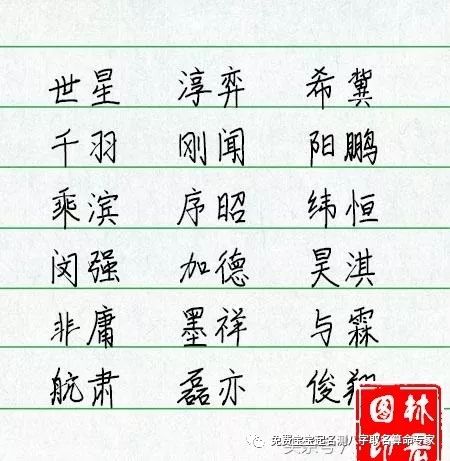 世星 淳弈 希冀
千羽 刚闻 阳鹏
乘滨 序昭 纬恒
闵强 加德 昊淇
非庸 墨祥 与霖
航肃 磊亦 俊翔
免费宝宝起名测八字取名算命专家